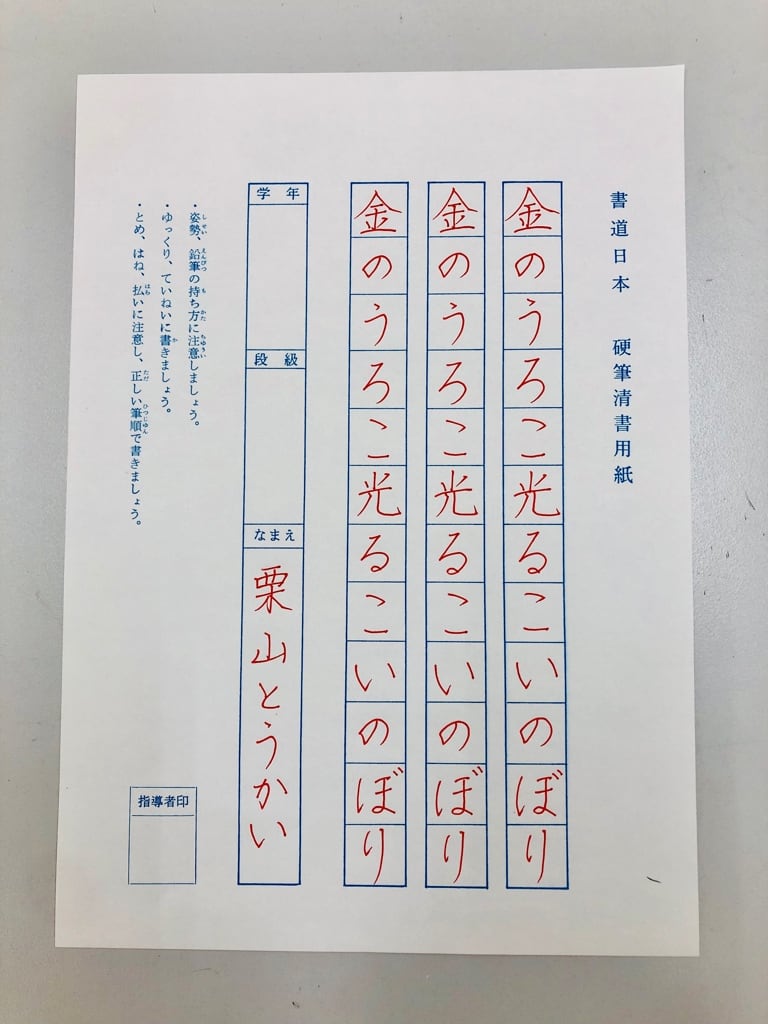 書道日本 硬筆清書用紙
金のうろこ光るこいのぼり
金のうろこ光るこいのぼり
金のうろこ光るこいのぼり
学年
段級
なまえ
栗山とうかい
・姿勢、鉛筆の持ち方に注意しましょう。
しせい えんぴつ も かた ちゅうい
・ゆっくり、ていねいに書きましょう。
か
・とめ、はね、払いに注意し、正しい筆順で書きましょう。
はら ただ ひつじゅん
指導者印